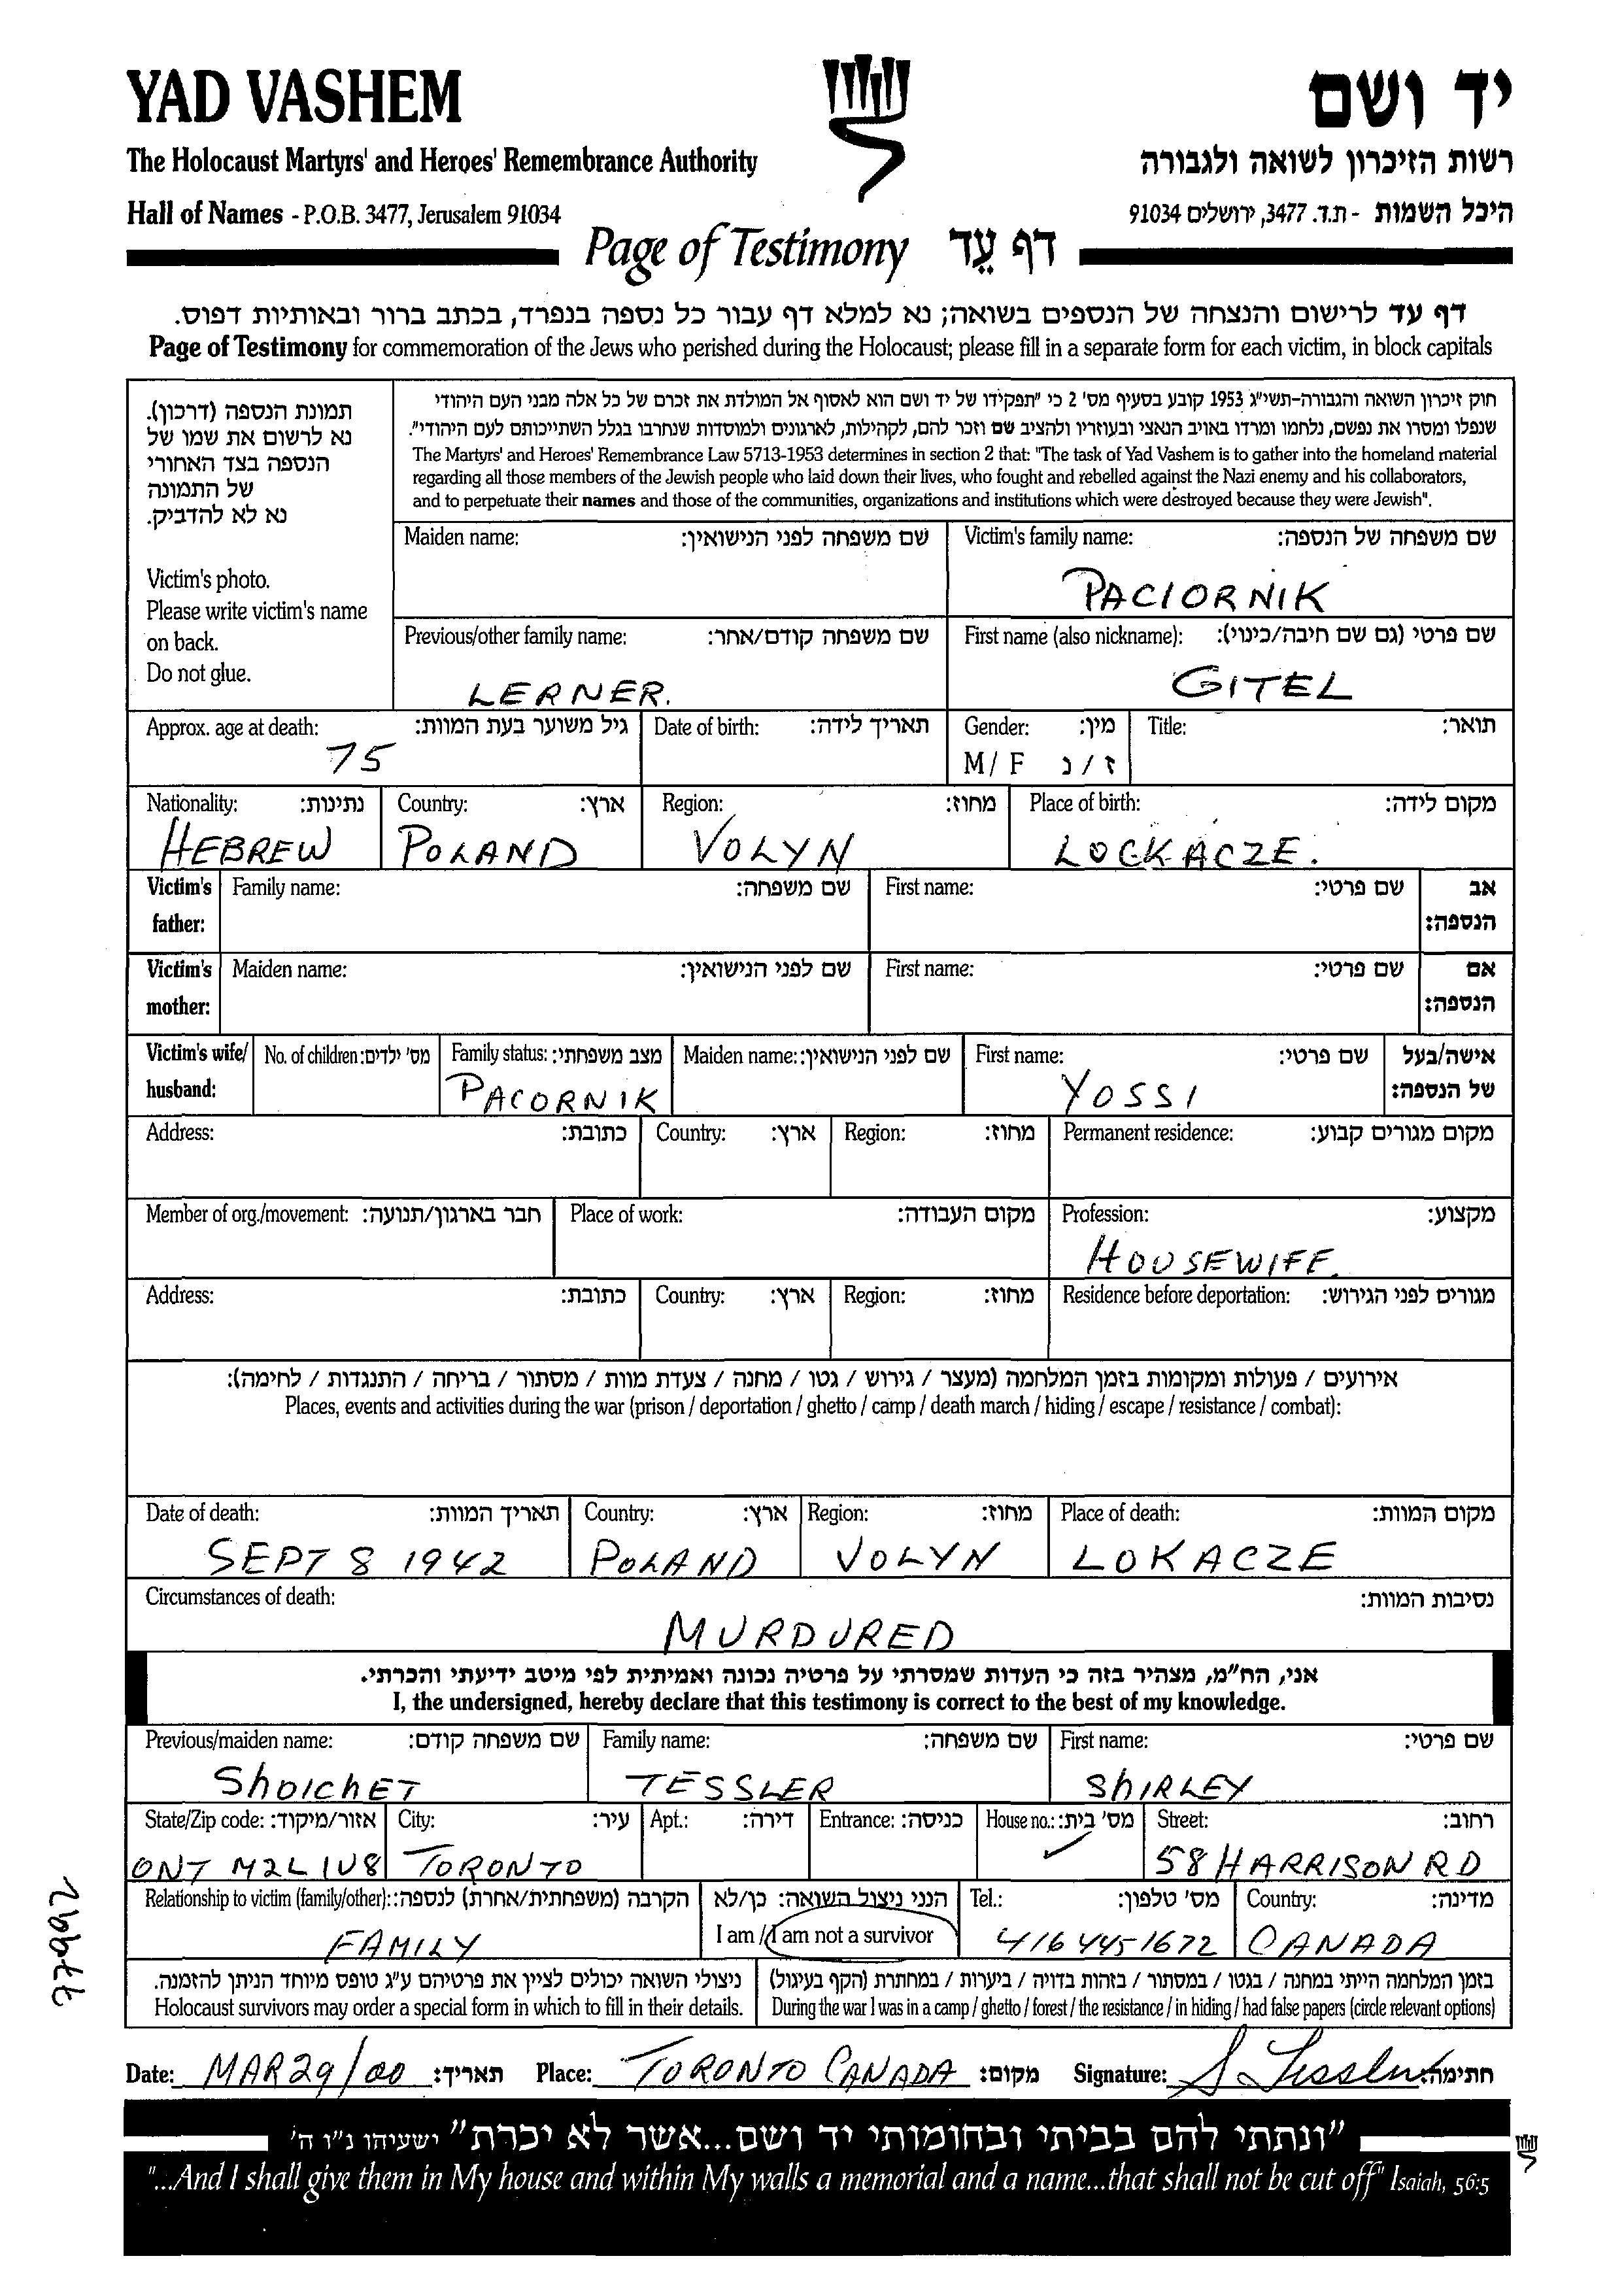 YAD VASHEM
יד ושם
The Holocaust Martyrs' and Heroes' Remembrance Authority
רשות הזיכרון לשואה ולגבורה
Hall of Names - P.O.B. 3477, Jerusalem 91034
היכל השמות - ת.ד. 3477, ירושלים 91034
Page of Testimony דף עֵד
דף עד לרישום והנצחה של הנספים בשואה; נא למלא דף עבור כל נספה בנפרד, בכתב ברור ובאותיות דפוס.
Page of Testimony for commemoration of the Jews who perished during the Holocaust; please fill in a separate form for each victim, in block capitals
תמונת הנספה (דרכון).
נא לרשום את שמו של
הנספה בצד האחורי
של התמונה
נא לא להדביק.
Victim's photo.
Please write victim's name
on back.
Do not glue.
חוק זיכרון השואה והגבורה-תשי"ג 1953 קובע בסעיף מס' 2 כי "תפקידו של יד ושם הוא לאסוף אל המולדת את זכרם של כל אלה מבני העם היהודי
שנפלו ומסרו את נפשם, נלחמו ומרדו באויב הנאצי ובעוזריו ולהציב שם וזכר להם, לקהילות, לארגונים ולמוסדות שנחרבו בגלל השתייכותם לעם היהודי".
The Martyrs' and Heroes' Remembrance Law 5713-1953 determines in section 2 that: "The task of Yad Vashem is to gather into the homeland material
regarding all those members of the Jewish people who laid down their lives, who fought and rebelled against the Nazi enemy and his collaborators,
and to perpetuate their names and those of the communities, organizations and institutions which were destroyed because they were Jewish".
Maiden name: שם משפחה לפני הנישואין:
Victim's family name: שם משפחה של הנספה:
PACIORNIK
Previous/other family name: שם משפחה קודם/אחר:
LERNER.
First name (also nickname): שם פרטי (גם שם חיבה/כינוי):
GITEL
Approx. age at death: גיל משוער בעת המוות:
75
Date of birth: תאריך לידה:
Gender: מין:
M / F ז / נ
Title: תואר:
Nationality: נתינות:
HEBREW
Country: ארץ:
POLAND
Region: מחוז:
VOLYN
Place of birth: מקום לידה:
LOCKACZE.
Victim's father: Family name: שם משפחה:
First name: שם פרטי:
אב הנספה:
Victim's mother: Maiden name: שם לפני הנישואין:
First name: שם פרטי:
אם הנספה:
Victim's wife/ husband: No. of children: מס' ילדים:
Family status: מצב משפחתי:
PACORNIK
Maiden name: שם לפני הנישואין:
First name: שם פרטי:
YOSSI
אישה/בעל של הנספה:
Address: כתובת:
Country: ארץ:
Region: מחוז:
Permanent residence: מקום מגורים קבוע:
Member of org./movement: חבר בארגון/תנועה:
Place of work: מקום העבודה:
Profession: מקצוע:
HOUSEWIFE.
Address: כתובת:
Country: ארץ:
Region: מחוז:
Residence before deportation: מגורים לפני הגירוש:
אירועים / פעולות ומקומות בזמן המלחמה (מעצר / גירוש / גטו / מחנה / צעדת מוות / מסתור / בריחה / התנגדות / לחימה):
Places, events and activities during the war (prison / deportation / ghetto / camp / death march / hiding / escape / resistance / combat):
Date of death: תאריך המוות:
SEPT 8 1942
Country: ארץ:
POLAND
Region: מחוז:
VOLYN
Place of death: מקום המוות:
LOKACZE
Circumstances of death: נסיבות המוות:
MURDURED
אני, הח"מ, מצהיר בזה כי העדות שמסרתי על פרטיה נכונה ואמיתית לפי מיטב ידיעתי והכרתי.
I, the undersigned, hereby declare that this testimony is correct to the best of my knowledge.
Previous/maiden name: שם משפחה קודם:
ShOICHET
Family name: שם משפחה:
TESSLER
First name: שם פרטי:
ShIRLEY
State/Zip code: אזור/מיקוד:
ONT M2L 1V8
City: עיר:
TORONTO
Apt.: דירה:
Entrance: כניסה:
House no.: מס' בית:
Street: רחוב:
58 HARRISON RD
Relationship to victim (family/other): הקרבה (משפחתית/אחרת) לנספה:
FAMILY
הנני ניצול השואה: כן/לא
I am / I am not a survivor
Tel.: מס' טלפון:
416 4451672
Country: מדינה:
CANADA
ניצולי השואה יכולים לציין את פרטיהם ע"ג טופס מיוחד הניתן להזמנה.
Holocaust survivors may order a special form in which to fill in their details.
בזמן המלחמה הייתי במחנה / בגטו / במסתור / בזהות בדויה / ביערות / במחתרת (הקף בעיגול)
During the war I was in a camp / ghetto / forest / the resistance / in hiding / had false papers (circle relevant options)
Date: MAR 29/00 תאריך: Place: TORONTO CANADA מקום: Signature: S Tessler חתימה:
"ונתתי להם בביתי ובחומותי יד ושם...אשר לא יכרת" ישעיהו נ"ו ה'
"...And I shall give them in My house and within My walls a memorial and a name...that shall not be cut off" Isaiah, 56:5